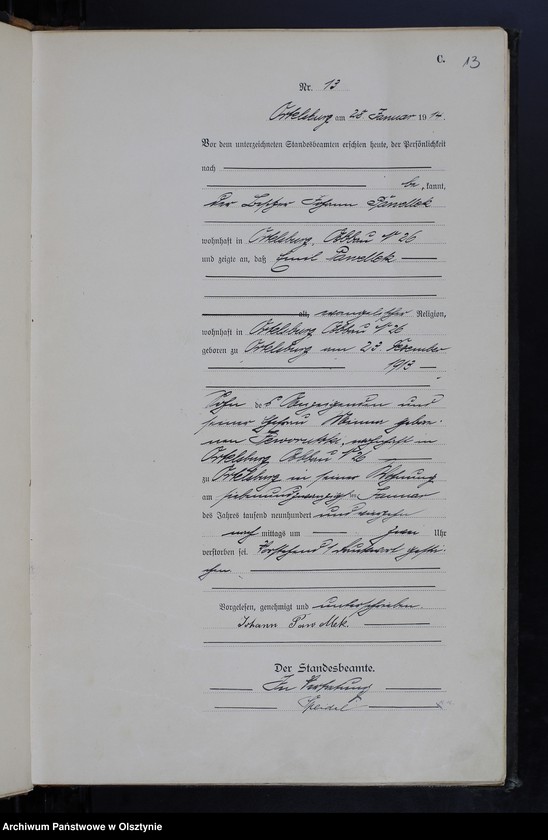 C. 13
Nr. 13
Ortelsburg am 28 Januar 1914.
Vor dem unterzeichneten Standesbeamten erschien heute, der Persönlichkeit
nach
be, kannt,
der Besitzer Johann Pawellek
wohnhaft in Ortelsburg, Abbau № 26
und zeigte an, daß Emil Pawellek
alt, evangelischer Religion,
wohnhaft in Ortelsburg Abbau № 26
geboren zu Ortelsburg am 23. Dezember
1913
Sohn des Anzeigenden und
seiner Ehefrau Minna gebore-
nen wohnhaft in
Ortelsburg Abbau № 26
zu Ortelsburg in seiner Wohnung
am siebenundzwanzigsten Januar
des Jahres tausend neunhundert und vierzehn
nachmittags um zwei Uhr
verstorben sei. Vorstehend 1 Druckwort gestri-
chen.
Vorgelesen, genehmigt und unterschrieben
Johann Pawellek.
Der Standesbeamte.
In Vertretung
Archiwum Państwowe w Olsztynie